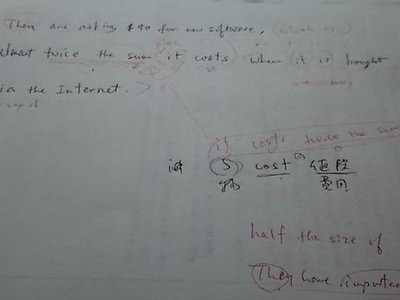 They are asking $90 for new software, (which is)
almost twice the sum it costs when it is bought
via the Internet.
it costs twice the sum
S cost 値段
費用
half the size of
They have imported